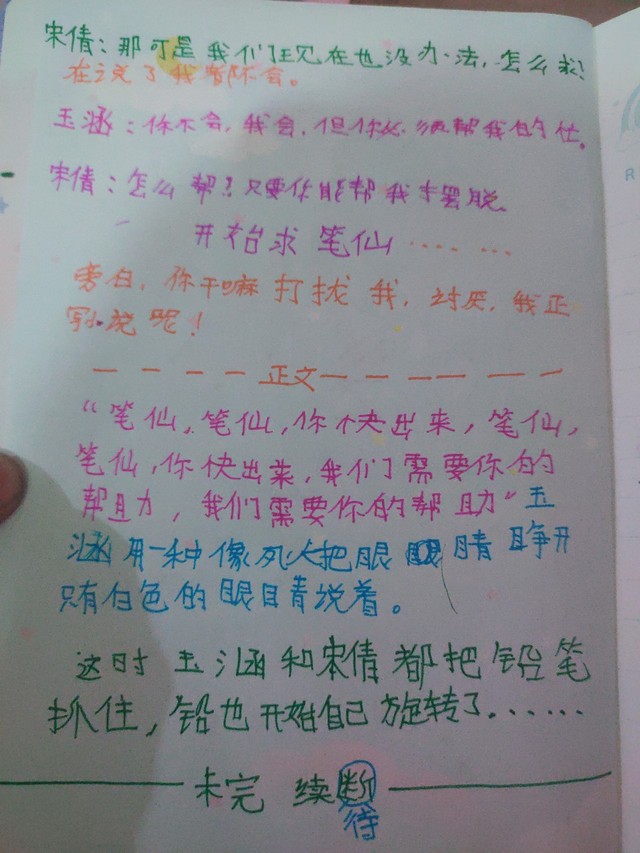 宋倩：那可是我们现在也没办法，怎么求！
在说了我都不会。
玉涵：你不会，我会，但你必须帮我的忙。
宋倩：怎么帮？只要你能帮我摆脱
开始求笔仙……
旁白，你干嘛打扰我，讨厌，我正
写小说呢！
————正文—————
“笔仙，笔仙，你快出来，笔仙，
笔仙，你快出来，我们需要你的
帮助，我们需要你的帮助”玉
涵用一种像死人把眼睛睁开
只有白色的眼睛说着。
这时玉涵和宋倩都把铅笔
抓住，铅也开始自己旋转了……
未完 续断
待
R